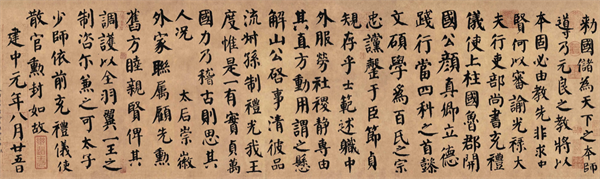 敕國儲為天下之本師
導乃元良之教將以
本固必由教先非求中
賢何以審諭光祿大
夫行吏部尚書充禮
儀使上柱國魯郡開
國公顏真卿立德
踐行當四科之首懿
文碩學為百氏之宗
忠讜罄于臣節貞
規存乎士範述職中
外服勞社稷靜專由
其直方動用謂之懸
解山公啓事清彼品
流叔孫制禮光我王
度惟是一有實貞萬
國力乃稽古則思其
人況 太后崇徽
外家聯屬顧先勳
舊方睦親賢俾其
調護以全羽翼一王之
制咨爾兼之可太子
少師依前充禮儀使
散官勳封如故
建中元年八月廿五日